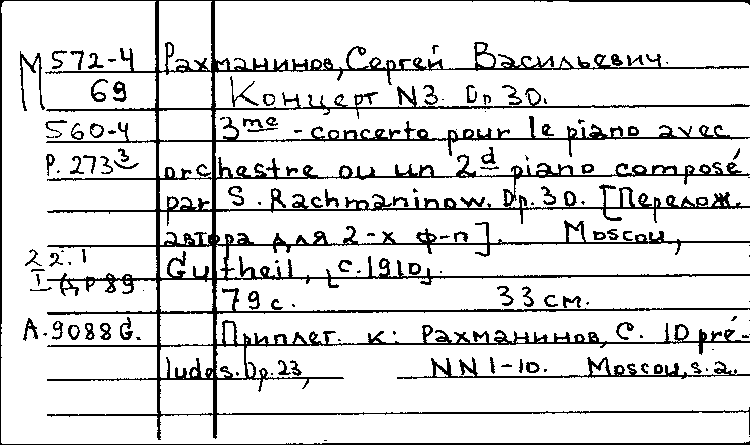 М 572-4 Рахманинов, Сергей Васильевич.
69 Концерт N3. Op 30.
560-4 3me - concerto pour le piano avec
Р. 273 3 orchestre ou un 2d piano composé
par S. Rachmaninow. Op. 30. [Перелож.
автора для 2-х ф-п]. Moscou,
22.1 Gutheil, [с. 1910].
79 с. 33 см.
А. 9088 G. Приплет. к: Рахманинов, С. 10 pré-
ludes. Op. 23, NN 1-10. Moscou, s.a.